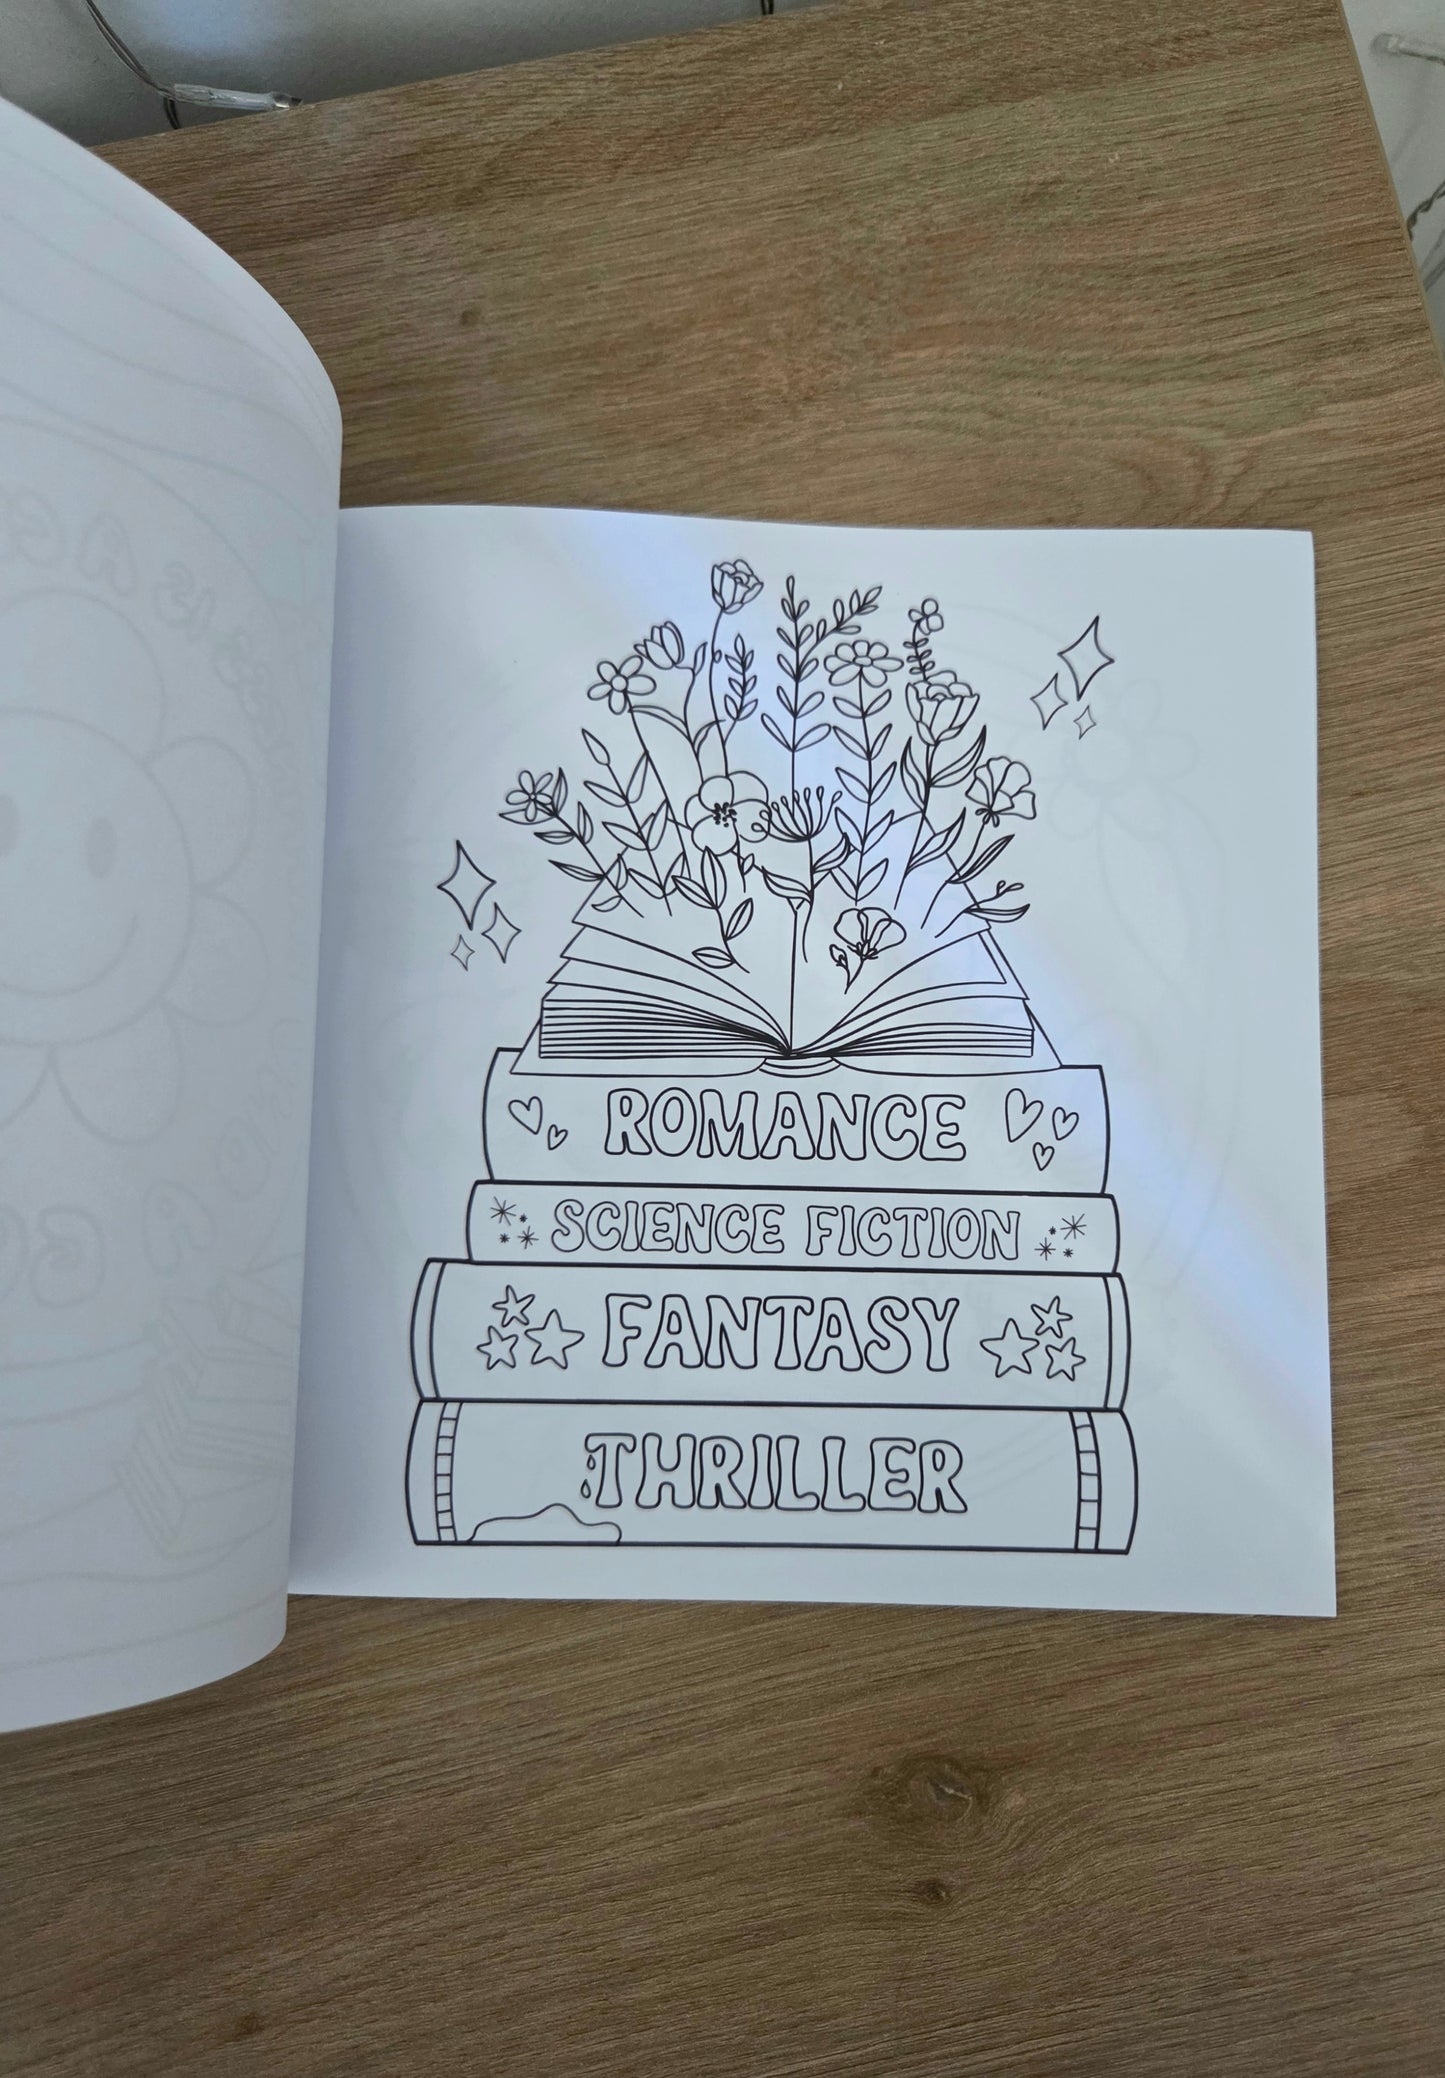 ROMANCE
SCIENCE FICTION
FANTASY
THRILLER